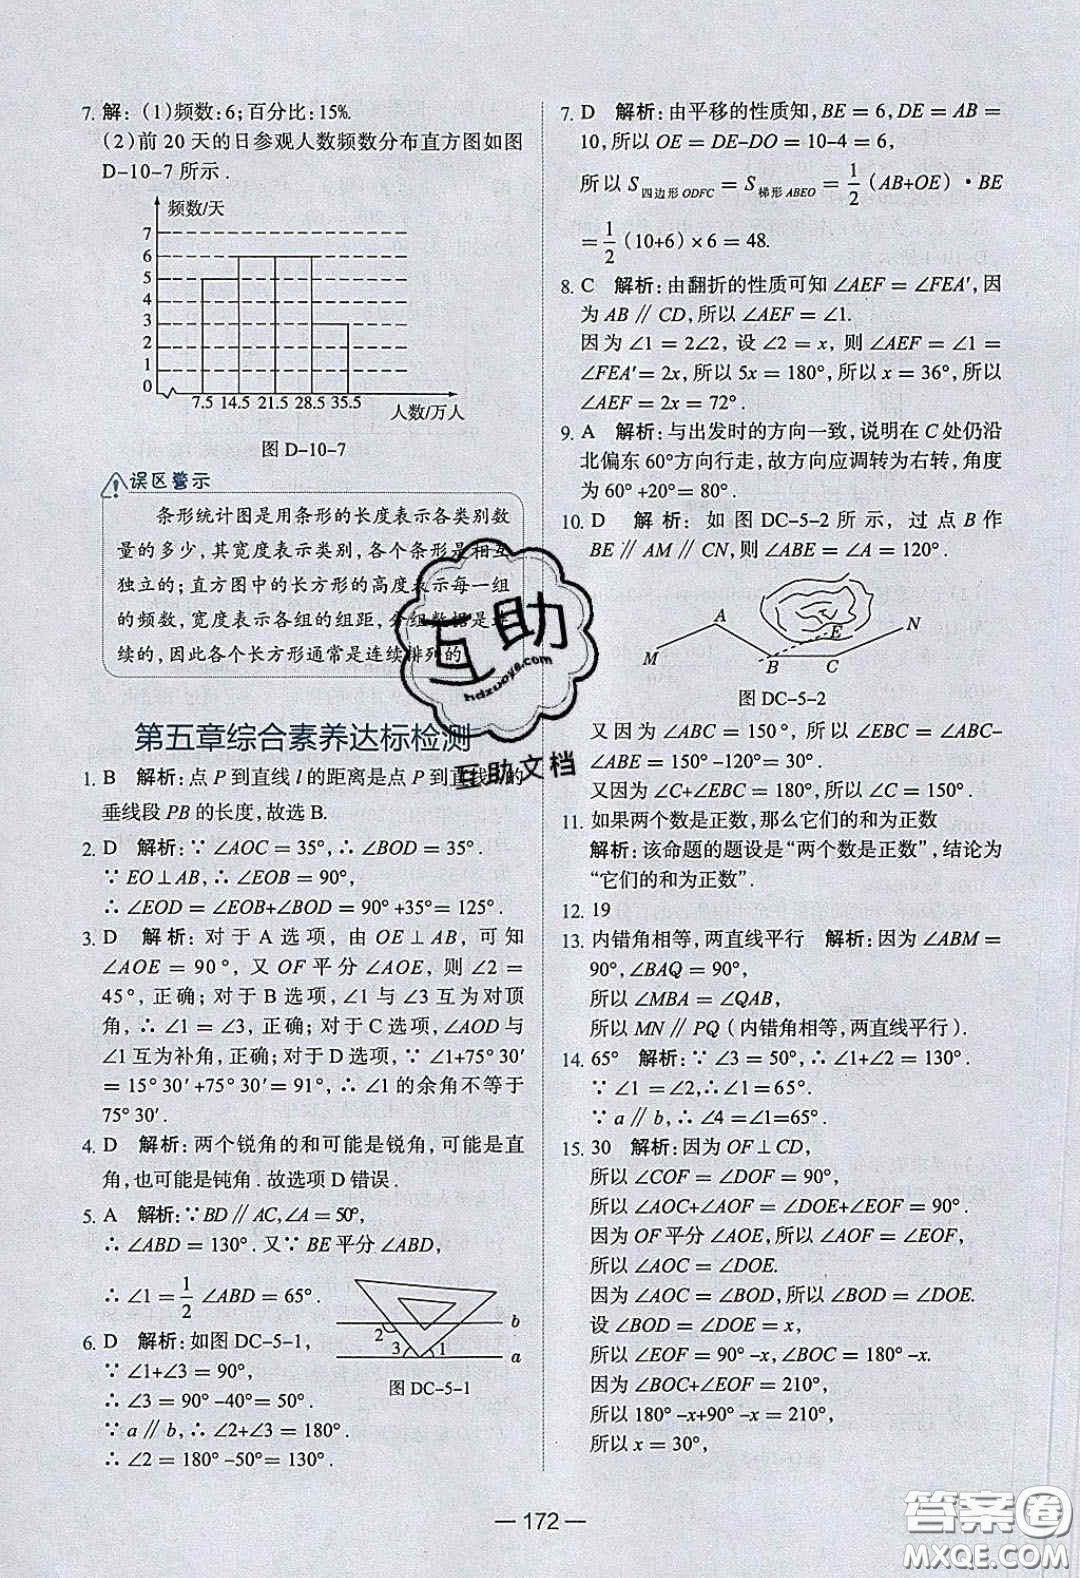 7. 解：(1)频数：6；百分比：15%.
(2)前 20 天的日参观人数频数分布直方图如图
D-10-7 所示．
频数/天
7
6
5
4
3
2
1
0
7.5 14.5 21.5 28.5 35.5
人数/万人
图 D-10-7
误区警示
条形统计图是用条形的长度表示各类别数
量的多少，其宽度表示类别，各个条形是相互
独立的；直方图中的长方形的高度表示每一组
的频数，宽度表示各组的组距，分组数据是连
续的，因此各个长方形通常是连续排列的
第五章综合素养达标检测
1. B 解析：点 P 到直线 l 的距离是点 P 到直线 的
垂线段 PB 的长度，故选 B.
2. D 解析：∵ ∠AOC = 35°，∴ ∠BOD = 35°．
∵ EO⊥AB，∴ ∠EOB = 90°，
∴ ∠EOD = ∠EOB+∠BOD = 90° +35°= 125°．
3. D 解析：对于 A 选项，由 OE⊥AB，可知
∠AOE = 90°，又 OF 平分∠AOE，则 ∠2 =
45°，正确；对于 B 选项，∠1 与∠3 互为对顶
角，∴ ∠1 = ∠3，正确；对于 C 选项，∠AOD 与
∠1 互为补角，正确；对于 D 选项，∵ ∠1+75° 30′
= 15° 30′ +75° 30′ = 91°，∴ ∠1 的余角不等于
75° 30′．
4. D 解析：两个锐角的和可能是锐角，可能是直
角，也可能是钝角．故选项 D 错误．
5. A 解析：∵BD∥AC，∠A = 50°，
∴ ∠ABD = 130°．又∵ BE 平分∠ABD，
∴ ∠1 = 1/2 ∠ABD = 65°．
6. D 解析：如图 DC-5-1，
∵ ∠1+∠3 = 90°，
∴ ∠3 = 90° -40°= 50°．
∵ a∥b，∴ ∠2+∠3 = 180°．
∴ ∠2 = 180° -50°= 130°．
2
3
1
b
a
图 DC-5-1
7. D 解析：由平移的性质知，BE = 6，DE = AB =
10，所以 OE = DE-DO = 10-4 = 6，
所以 S四边形ODFC = S梯形ABEO = 1/2 (AB+OE)·BE
= 1/2 (10+6)×6 = 48.
8. C 解析：由翻折的性质可知 ∠AEF = ∠FEA′，因
为 AB∥CD，所以 ∠AEF = ∠1.
因为 ∠1 = 2∠2，设 ∠2 = x，则 ∠AEF = ∠1 =
∠FEA′= 2x，所以 5x = 180°，所以 x = 36°，所以
∠AEF = 2x = 72°．
9. A 解析：与出发时的方向一致，说明在 C 处仍沿
北偏东 60°方向行走，故方向应调转为右转，角度
为 60° +20°= 80°．
10. D 解析：如图 DC-5-2 所示，过点 B 作
BE∥AM∥CN，则 ∠ABE = ∠A = 120°．
M
A
B
C
E
N
图 DC-5-2
又因为 ∠ABC = 150°，所以 ∠EBC = ∠ABC-
∠ABE = 150° -120°= 30°．
又因为 ∠C+∠EBC = 180°，所以 ∠C = 150°．
11. 如果两个数是正数，那么它们的和为正数
解析：该命题的题设是“两个数是正数”，结论为
“它们的和为正数”．
12. 19
13. 内错角相等，两直线平行 解析：因为 ∠ABM =
90°，∠BAQ = 90°，
所以 ∠MBA = ∠QAB，
所以 MN∥PQ（内错角相等，两直线平行）．
14. 65° 解析：∵ ∠3 = 50°，∴ ∠1+∠2 = 130°．
∵ ∠1 = ∠2，∴ ∠1= 65°．
∵ a∥b，∴ ∠4 =∠1=65°．
15. 30 解析：因为 OF⊥CD，
所以 ∠COF = ∠DOF = 90°，
所以 ∠AOC+∠AOF = ∠DOE+∠EOF = 90°．
因为 OF平分 ∠AOE，所以 ∠AOF = ∠EOF，
所以 ∠AOC = ∠DOE.
因为 ∠AOC = ∠BOD，所以 ∠BOD = ∠DOE.
设 ∠BOD = ∠DOE = x，
所以 ∠EOF = 90° -x，∠BOC = 180° -x.
因为 ∠BOC+∠EOF = 210°，
所以 180° -x+90° -x = 210°，
所以 x = 30°，
— 172 —
互助
hdzuoye.com
互助文档
答案圈
MXQE.COM